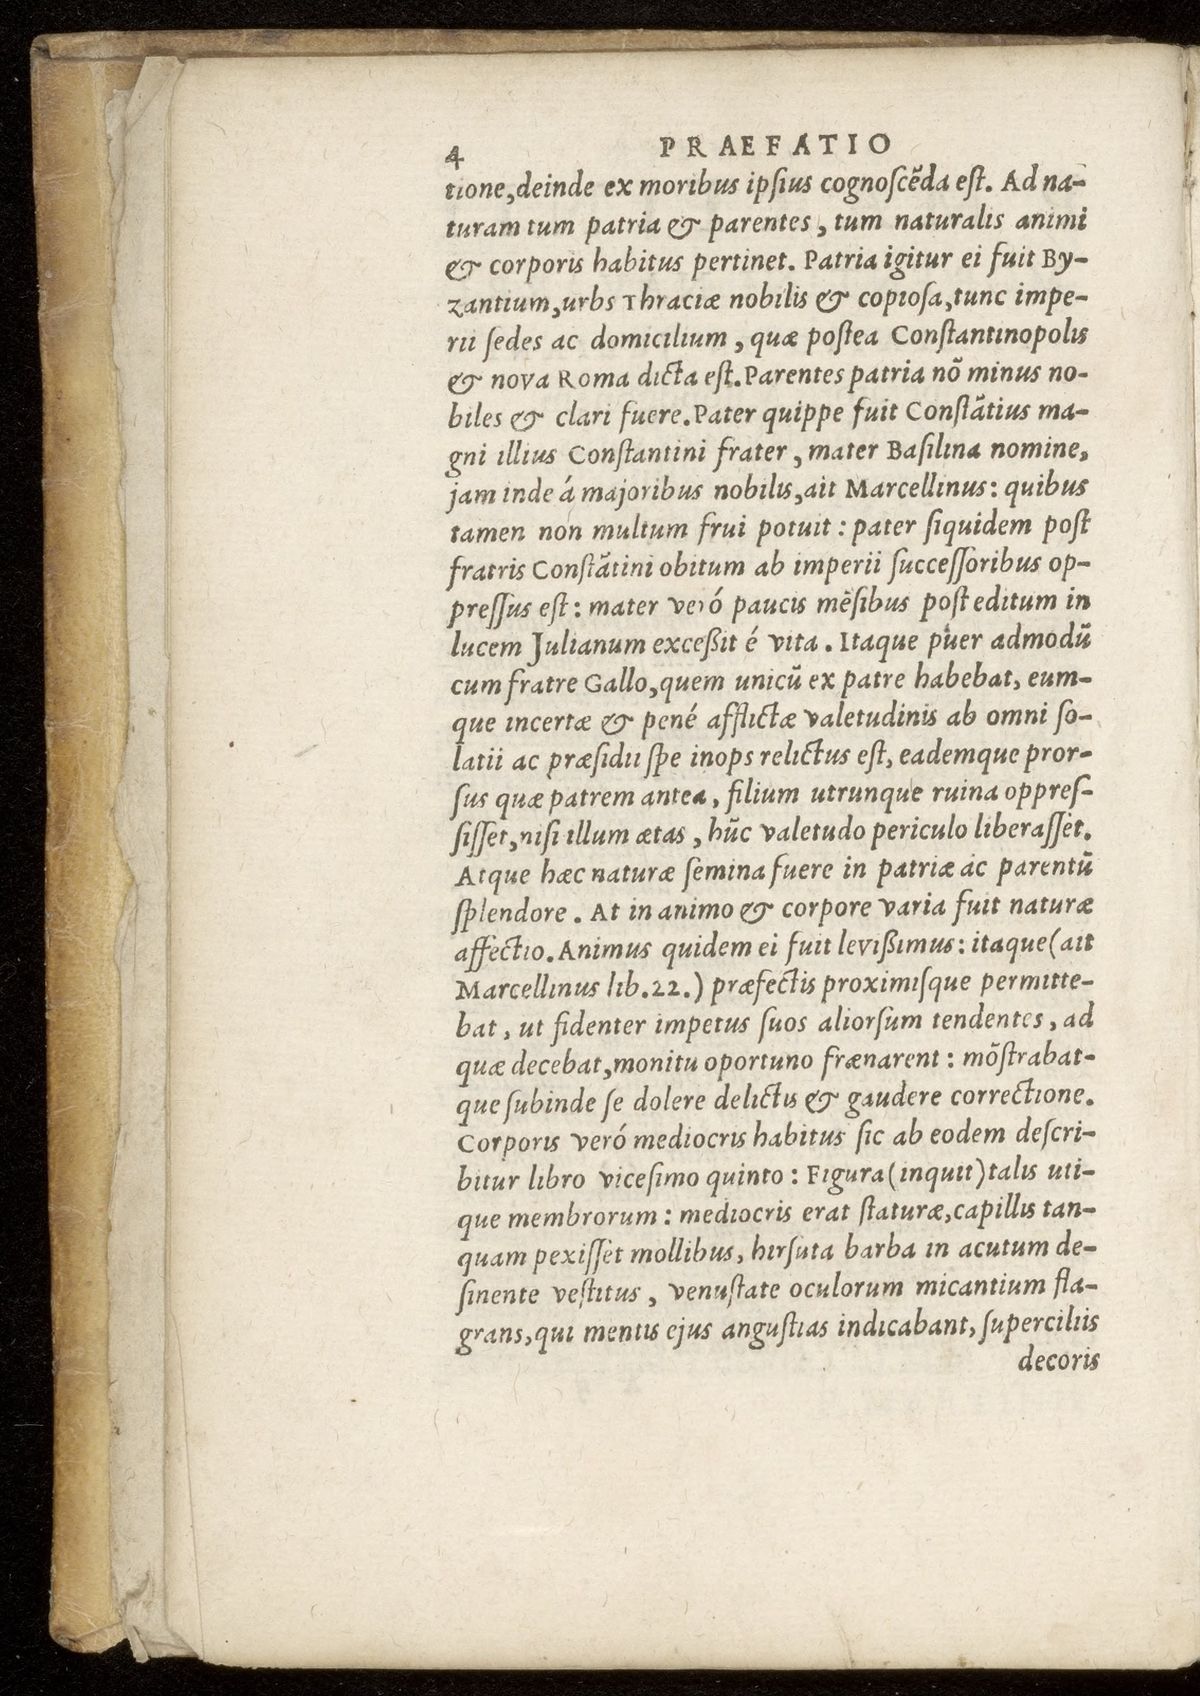 4 PRAEFATIO
tione, deinde ex moribus ipſius cognoſcẽda eſt. Ad na-
turam tum patria & parentes, tum naturalis animi
& corporis habitus pertinet. Patria igitur ei fuit By-
zantium, urbs Thraciæ nobilis & copioſa, tunc impe-
rii ſedes ac domicilium, quæ poſtea Conſtantinopolis
& nova Roma dicta eſt. Parentes patria nõ minus no-
biles & clari fuere. Pater quippe fuit Conſtãtius ma-
gni illius Conſtantini frater, mater Baſilina nomine,
jam inde á majoribus nobilis, ait Marcellinus: quibus
tamen non multum frui potuit: pater ſiquidem poſt
fratris Conſtãtini obitum ab imperii ſucceſſoribus op-
preſſus eſt: mater veró paucis mẽſibus poſt editum in
lucem Julianum exceßit é vita. Itaque puer admodũ
cum fratre Gallo, quem unicũ ex patre habebat, eum-
que incertæ & pené afflictæ valetudinis ab omni ſo-
latii ac præſidii ſpe inops relictus eſt, eademque pror-
ſus quæ patrem antea, filium utrunque ruina oppreſ-
ſiſſet, niſi illum ætas, hũc valetudo periculo liberaſſet.
Atque hæc naturæ ſemina fuere in patriæ ac parentũ
ſplendore. At in animo & corpore varia fuit naturæ
affectio. Animus quidem ei fuit levißimus: itaque (ait
Marcellinus lib. 22.) præfectis proximiſque permitte-
bat, ut fidenter impetus ſuos aliorſum tendentes, ad
quæ decebat, monitu oportuno frænarent: mõſtrabat-
que ſubinde ſe dolere delictis & gaudere correctione.
Corporis veró mediocris habitus ſic ab eodem deſcri-
bitur libro viceſimo quinto: Figura (inquit) talis uti-
que membrorum: mediocris erat ſtaturæ, capillis tan-
quam pexiſſet mollibus, hirſuta barba in acutum de-
ſinente veſtitus, venuſtate oculorum micantium fla-
grans, qui mentis ejus anguſtias indicabant, ſuperciliis
decoris